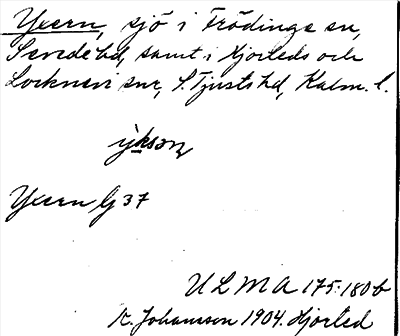 Yxern, sjö i Frödinge sn,
Sevede hd, samt i Hjorteds och
Locknevi snr, S. Tjusts hd, Kalm. l.
Yxern G 37
ULMA 175:180 b
K. Johansson 1904. Hjorted